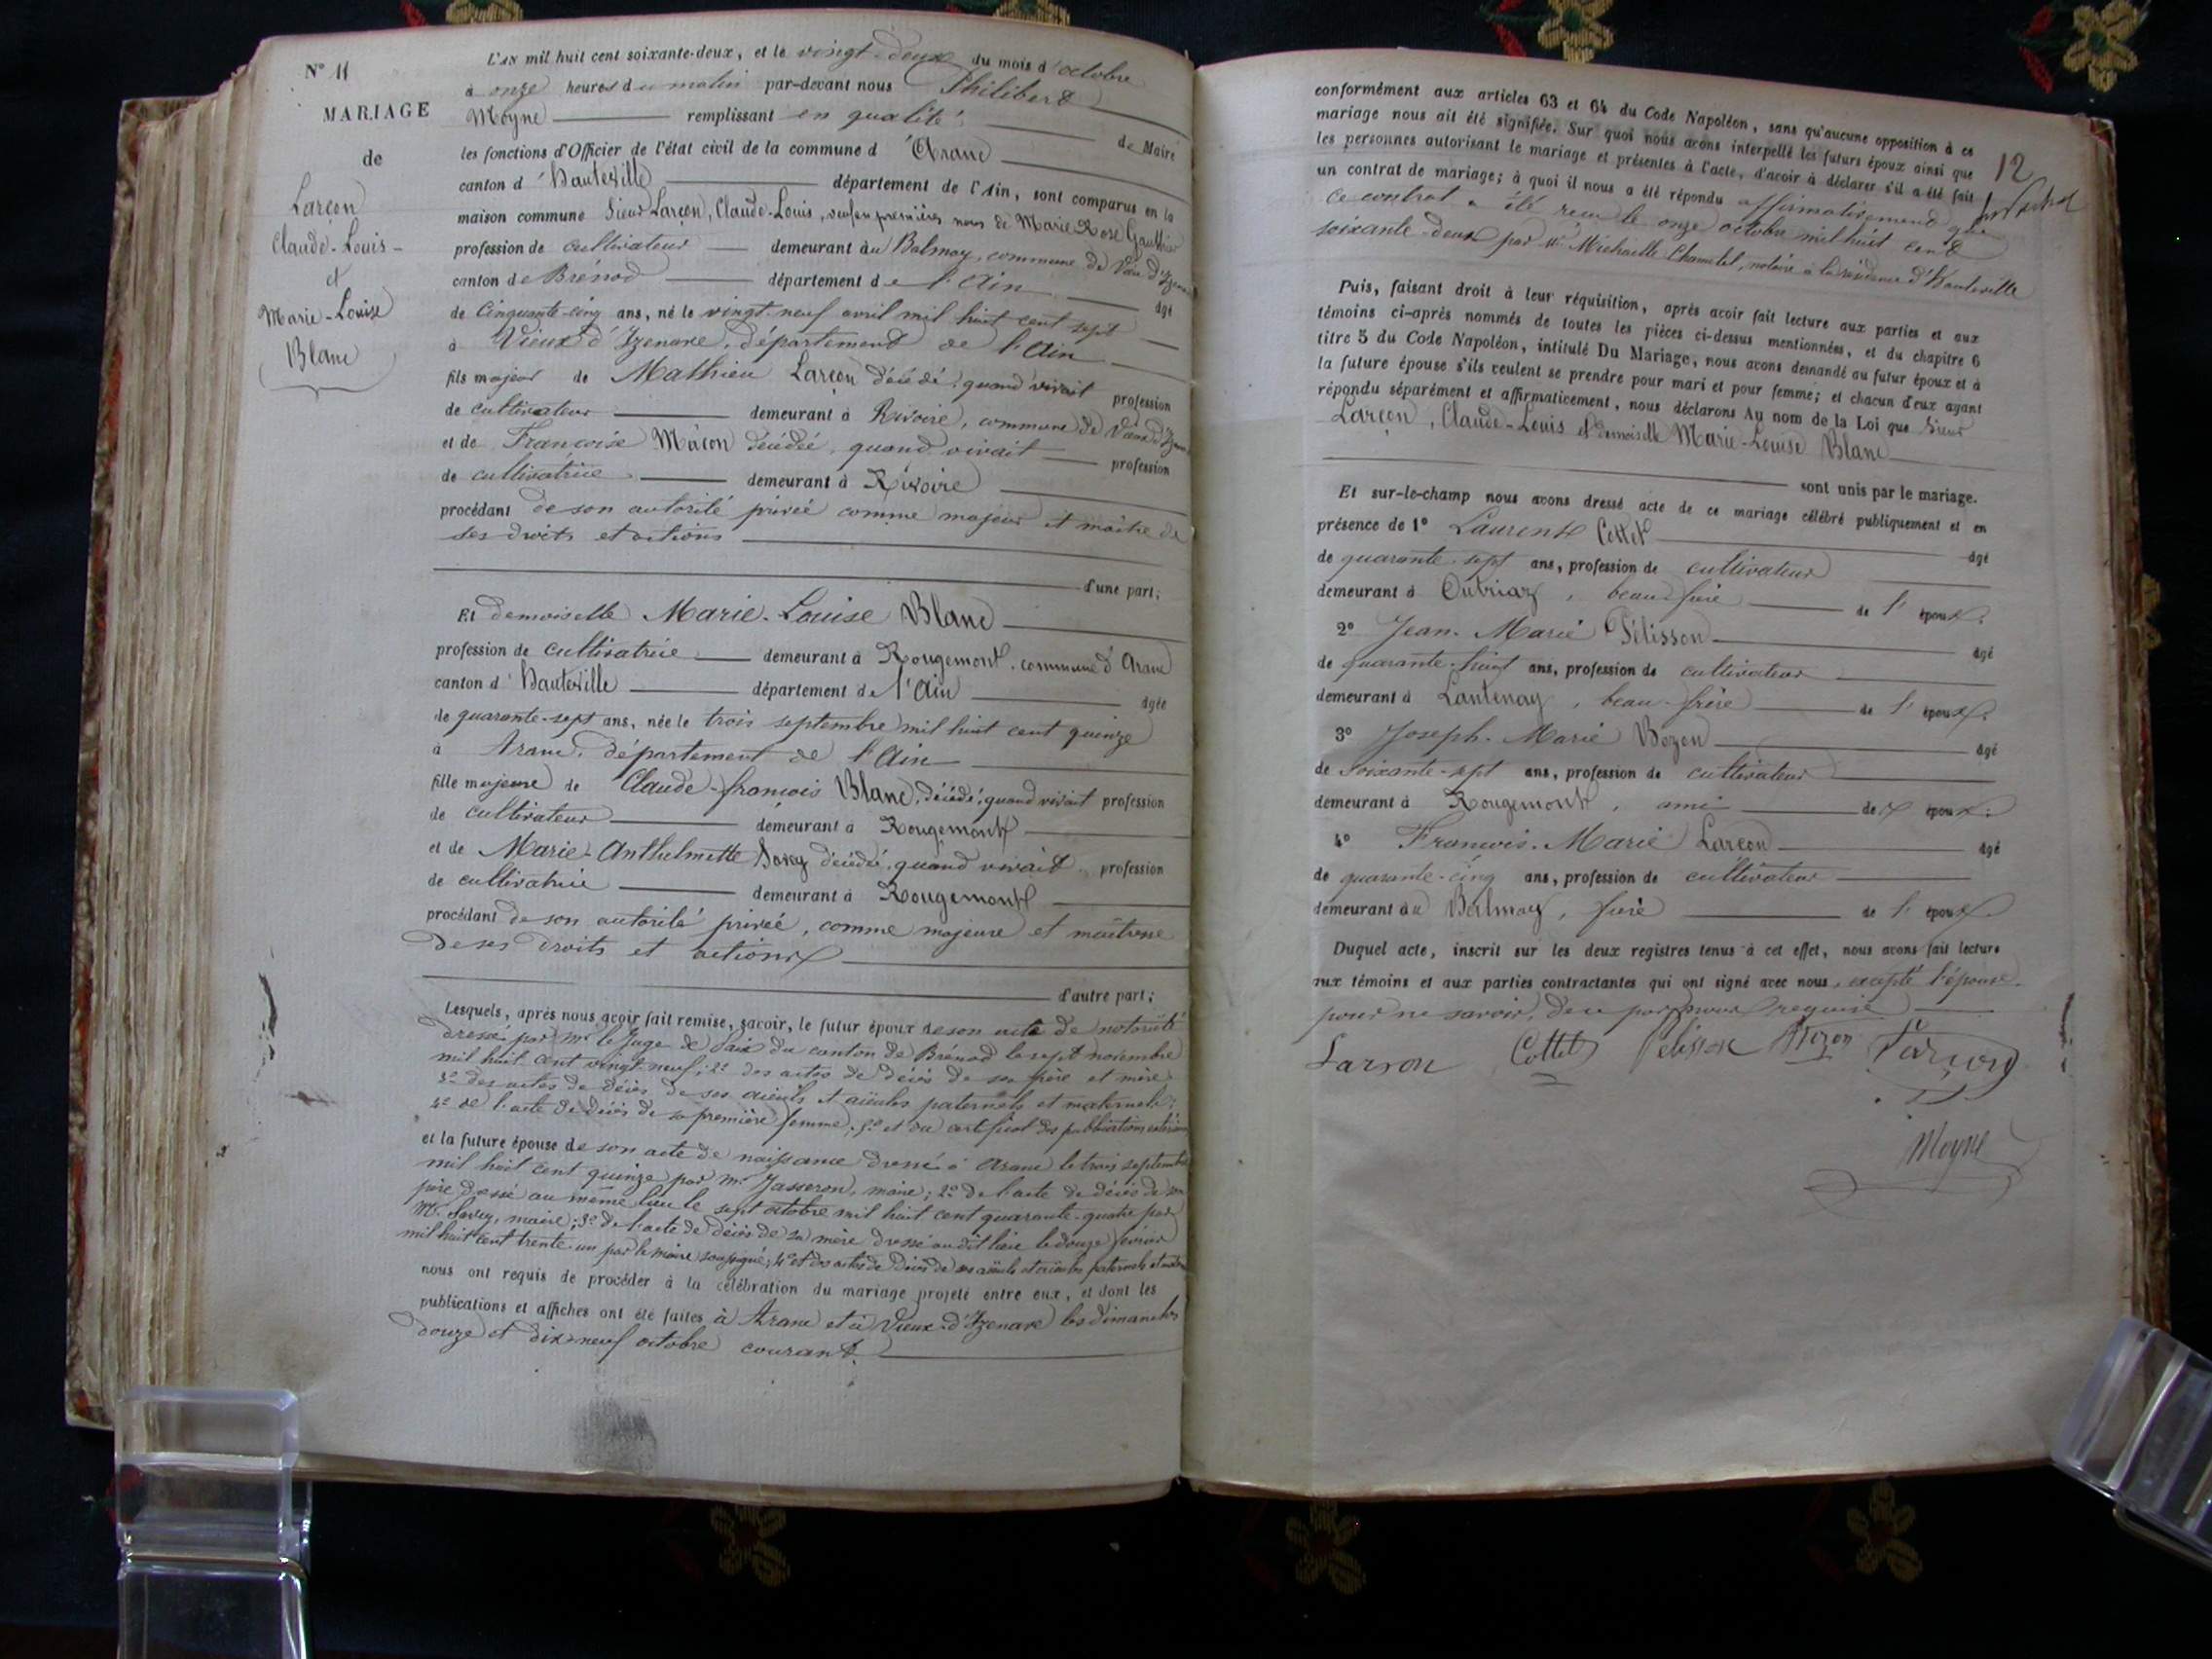 N° 11
MARIAGE
de
Larçon
Claude-Louis-
et
Marie-Louise
Blanc
L'AN mil huit cent soixante-deux, et le vingt-deux du mois d'octobre
à onze heures du matin par-devant nous Philibert
Moyne remplissant en qualité de Maire
les fonctions d'Officier de l'état civil de la commune d'Aranc
canton d'Hauteville département de l'Ain, sont comparus en la
maison commune Sieur Larçon, Claude-Louis, veuf en premières noces de Marie-Rose Gauthier
profession de cultivateur demeurant au Balmay, commune de Vieu d'Izenave
canton de Brénod département de l'Ain âgé
de cinquante-cinq ans, né le vingt-neuf avril mil huit cent sept
à Vieux d'Izenave, département de l'Ain
fils majeur de Mathieu Larçon décédé, quand vivait profession
de cultivateur demeurant à Rivoire, commune de Vieu d'Izenave
et de Françoise Mâcon décédée, quand vivait profession
de cultivatrice demeurant à Rivoire
procédant de son autorité privée comme majeur et maître de
ses droits et actions
d'une part;
Et demoiselle Marie-Louise Blanc
profession de cultivatrice demeurant à Rougemont, commune d'Aranc
canton d'Hauteville département de l'Ain âgée
de quarante-sept ans, née le trois septembre mil huit cent quinze
à Aranc, département de l'Ain
fille majeure de Claude-françois Blanc, décédé, quand vivait profession
de cultivateur demeurant à Rougemont
et de Marie-Anthelmette Savey décédée, quand vivait profession
de cultivatrice demeurant à Rougemont
procédant de son autorité privée, comme majeure et maîtresse
de ses droits et actions
d'autre part;
Lesquels, après nous avoir fait remise, savoir, le futur époux de son acte de notoriété
dressé par Mr le Juge de Paix du canton de Brénod le sept novembre
mil huit cent vingt-neuf; 2° des actes de décès de ses père et mère
3° des actes de décès de ses aïeuls et aïeules paternels et maternels;
4° de l'acte de décès de sa première femme; 5° et du certificat des publications
et la future épouse de son acte de naissance dressé à Aranc le trois septembre
mil huit cent quinze par Mr Jasseron, maire; 2° de l'acte de décès de son
père dressé au même lieu le sept octobre mil huit cent quarante-quatre par
Mr Savey, maire; 3° de l'acte de décès de sa mère dressé audit lieu le douze février
mil huit cent trente-un par le maire soussigné; 4° et des actes de décès de ses aïeuls et aïeules paternels et
nous ont requis de procéder à la célébration du mariage projeté entre eux, et dont les
publications et affiches ont été faites à Aranc et à Vieux-d'Izenave les dimanches
douze et dix-neuf octobre courant.
12
conformément aux articles 63 et 64 du Code Napoléon, sans qu'aucune opposition à ce
mariage nous ait été signifiée. Sur quoi nous avons interpellé les futurs époux ainsi que
les personnes autorisant le mariage et présentes à l'acte, d'avoir à déclarer s'il a été fait
un contrat de mariage; à quoi il nous a été répondu affirmativement que
ce contrat a été reçu le onze octobre mil huit cent
soixante-deux par Me Chametel, notaire à la résidence d'Hauteville
Puis, faisant droit à leur réquisition, après avoir fait lecture aux parties et aux
témoins ci-après nommés de toutes les pièces ci-dessus mentionnées, et du chapitre 6
titre 5 du Code Napoléon, intitulé Du Mariage, nous avons demandé au futur époux et à
la future épouse s'ils veulent se prendre pour mari et pour femme; et chacun d'eux ayant
répondu séparément et affirmativement, nous déclarons Au nom de la Loi que Sieur
Larçon, Claude-Louis et demoiselle Marie-Louise Blanc
sont unis par le mariage.
Et sur-le-champ nous avons dressé acte de ce mariage célébré publiquement et en
présence de 1° Laurent Cottet âgé
de quarante-sept ans, profession de cultivateur
demeurant à Outriaz, beau-frère de l'époux.
2° Jean-Marie Pélisson âgé
de quarante-huit ans, profession de cultivateur
demeurant à Lantenay, beau-frère de l'époux.
3° Joseph-Marie Bozon âgé
de soixante-sept ans, profession de cultivateur
demeurant à Rougemont, ami des époux.
4° François-Marie Larçon âgé
de quarante-cinq ans, profession de cultivateur
demeurant au Balmay, frère de l'époux.
Duquel acte, inscrit sur les deux registres tenus à cet effet, nous avons fait lecture
aux témoins et aux parties contractantes qui ont signé avec nous, excepté l'épouse
pour ne savoir, de ce par nous requise
Larson Cottet Pelisson Bozon Larçon
Moyne